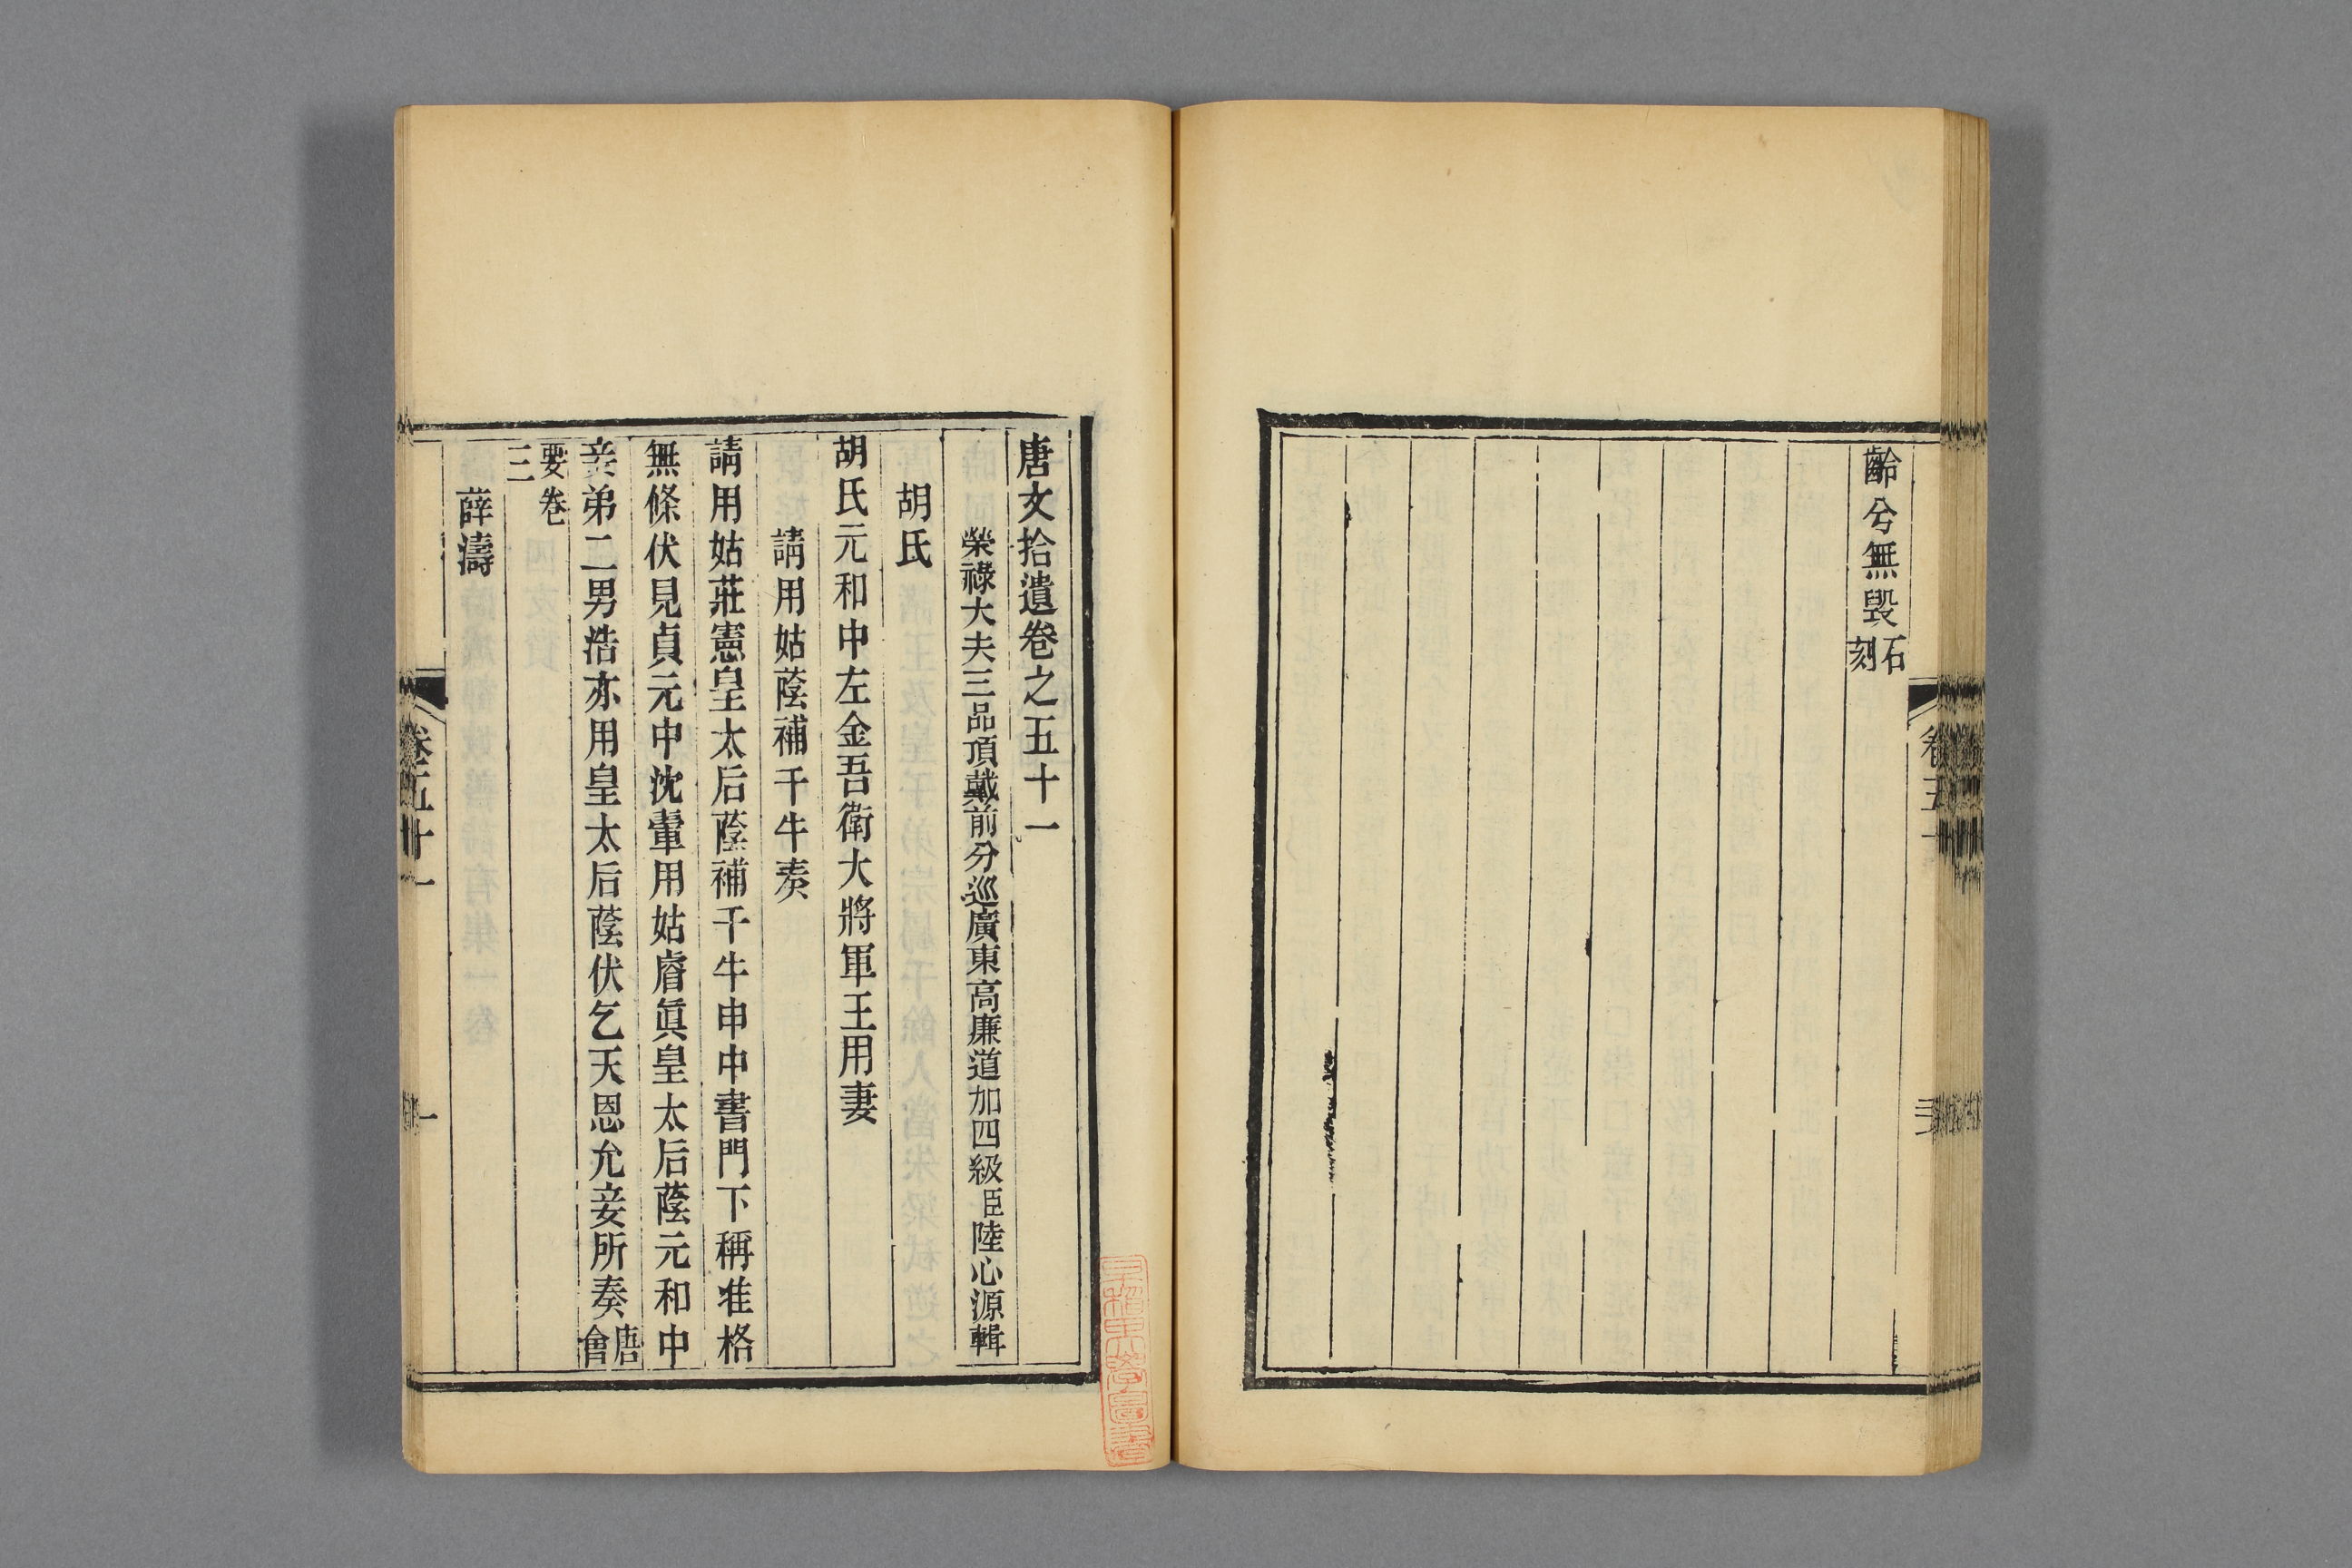 齡兮無毀石刻
卷五十
唐文拾遺卷之五十一
榮祿大夫三品頂戴前分巡廣東高廉道加四級臣陸心源輯
胡氏
胡氏元和中左金吾衛大將軍王用妻
請用姑蔭補千牛奏
請用姑莊憲皇太后蔭補千牛申中書門下稱准格
無條伏見貞元中沈輩用姑睿眞皇太后蔭元和中
妾弟二男浩亦用皇太后蔭伏乞天恩允妾所奏唐會
要卷三
薛濤
卷五十一
一